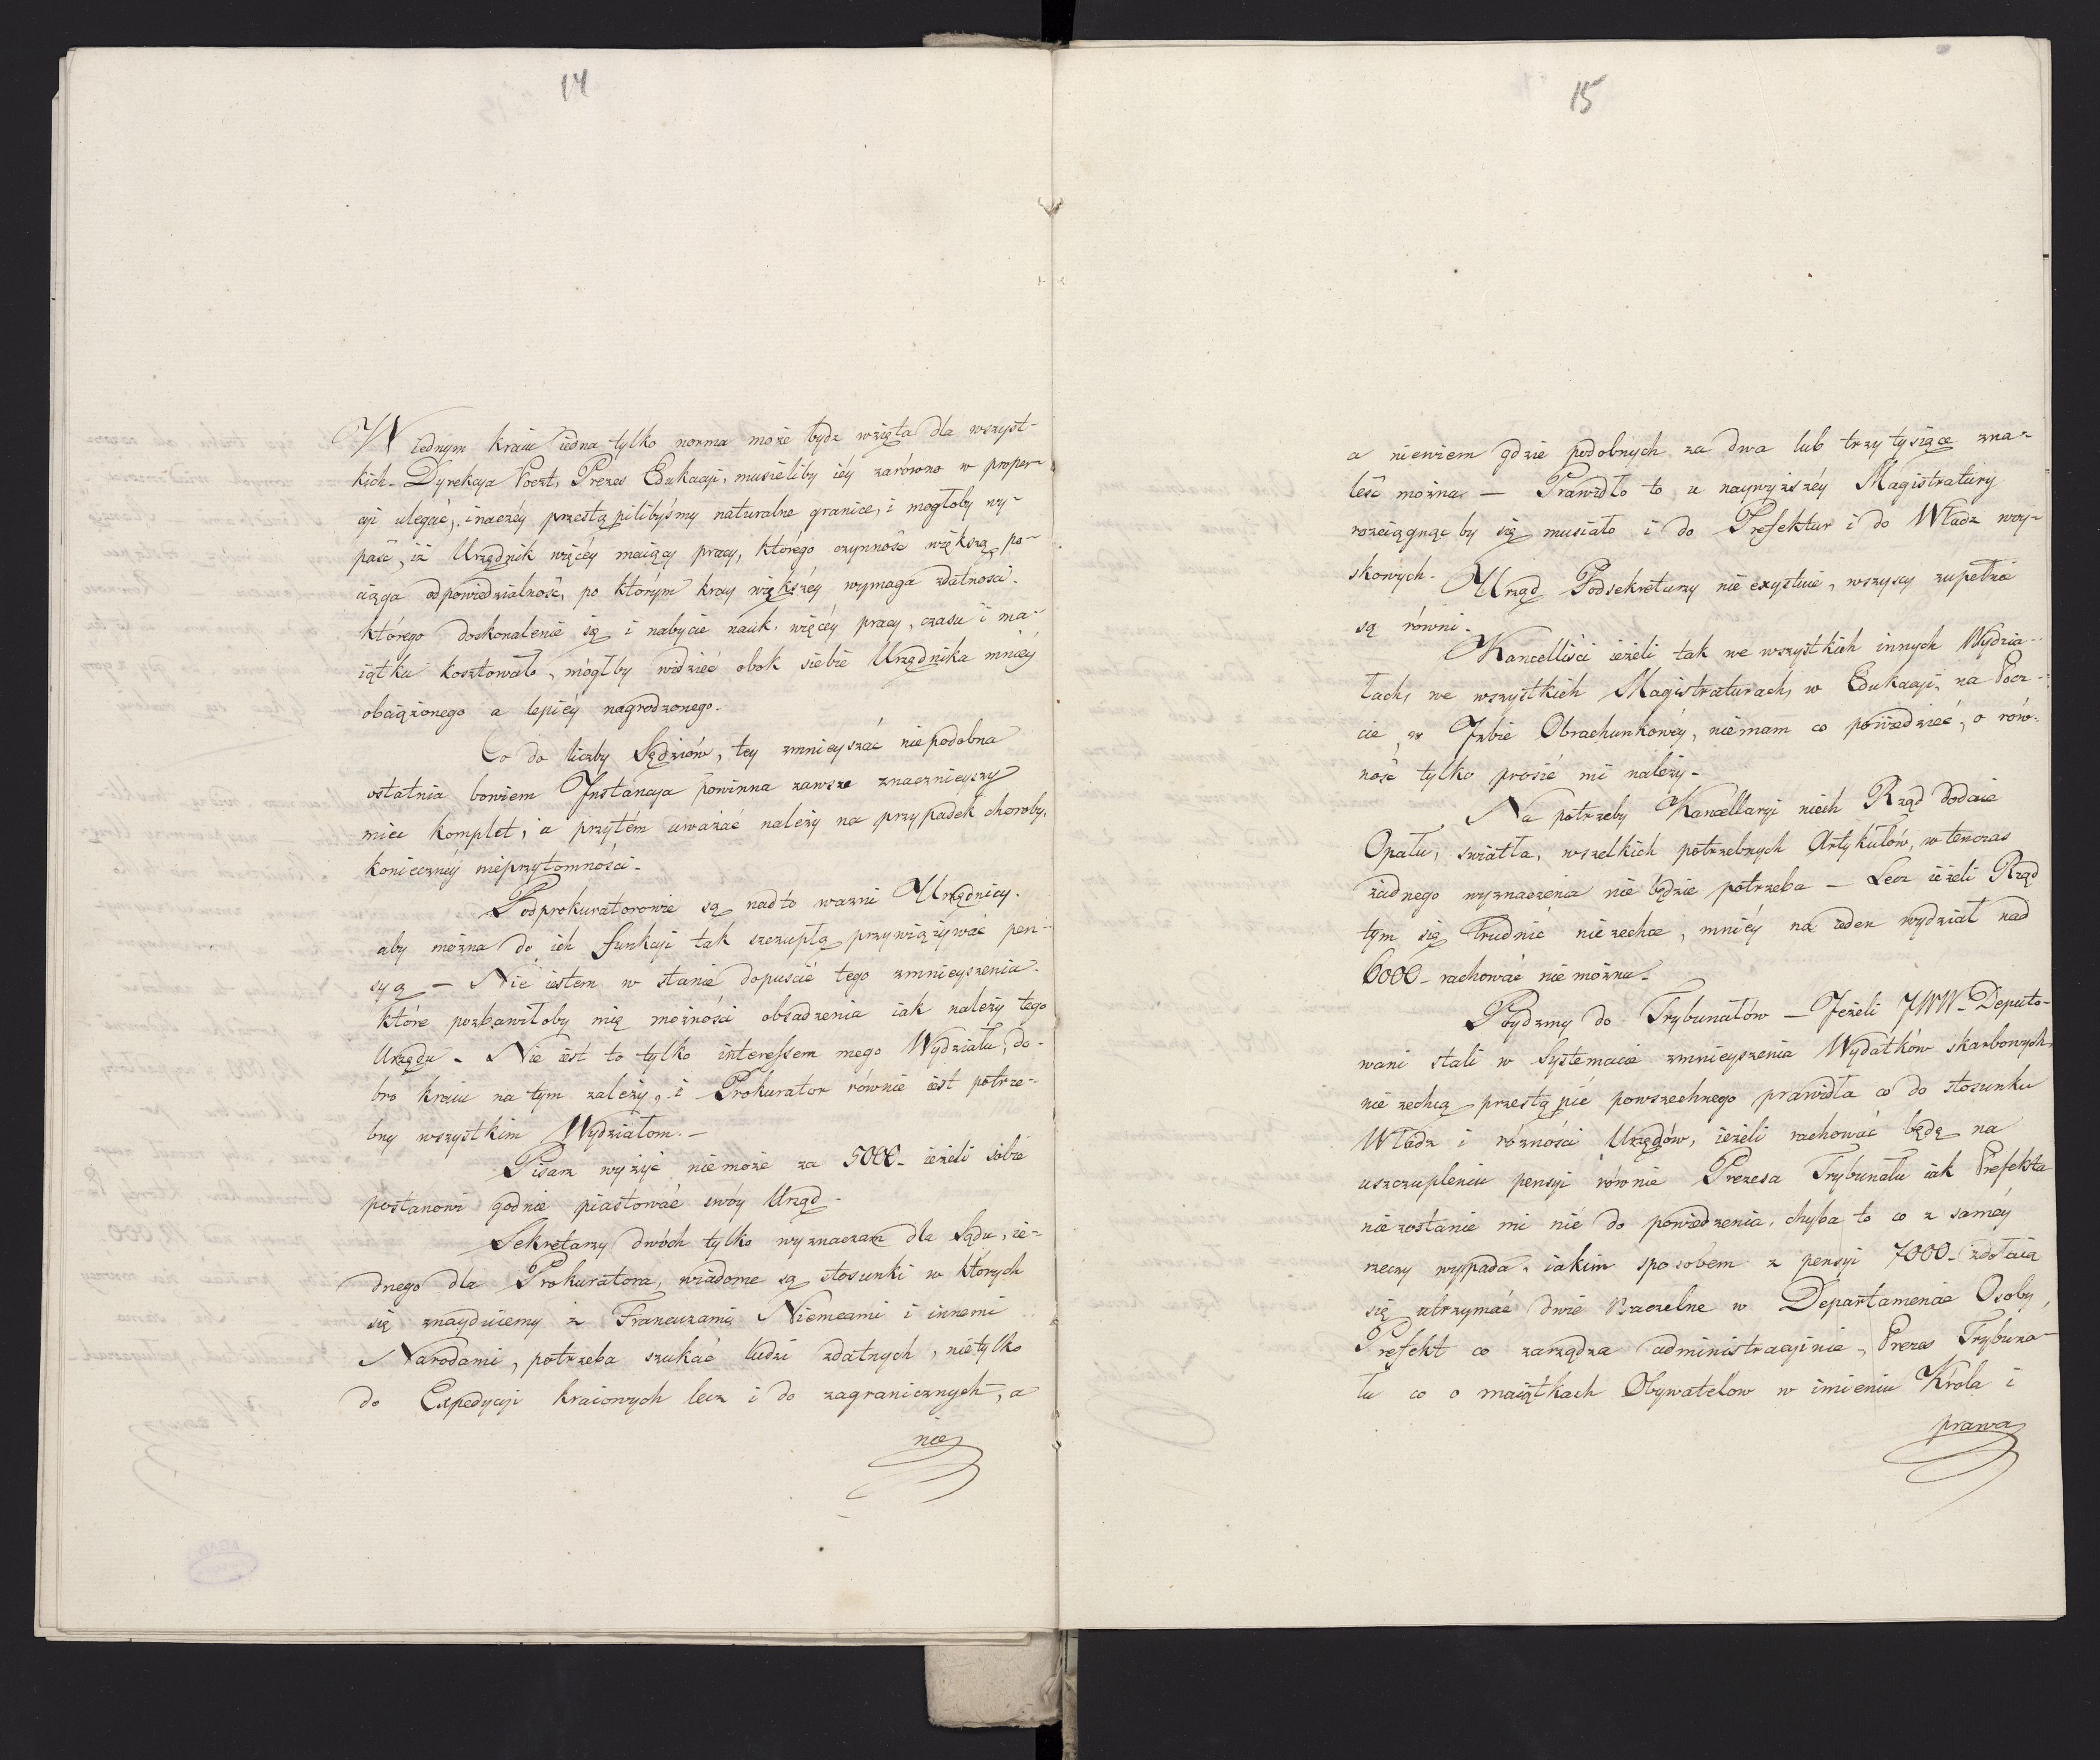 14
W iednym kraiu iedna tylko norma może bydz wzięta dla wszyst-
kich. Dyrekcya Poczt, Prezes Edukacyi, musieliby iéy zarówno w propor-
cyi ulegać, inaczéy przestąpilibyśmy naturalne granice, i mogłoby wy-
paść, iż Urzędnik więcéy maiący pracy, którego czynność większą po-
ciąga odpowiedzialność, po którym kray większéy wymaga zdatności.
którego doskonalenie się i nabycie nauk, więcéy pracy, czasu i ma-
iątku kosztowało, mógłby widzieć obok siebie Urzędnika mniéy
obciążonego a lepiéy nagrodzonego.
Co do liczby Sędziów, tey zmnieyszać niepodobna
ostatnia bowiem Instancya powinna zawsze znacznieyszy
mieć komplet, a przytém uważać należy na przypadek choroby,
koniecznéy nieprzytomności.
Podprokuratorowie są nadto ważni Urzędnicy.
aby można do ich funkcyi tak szczupłą przywiązywać pen-
syą — Nie iestem w stanie dopuścić tego zmnieyszenia.
które pozbawiłoby mię możności obsadzenia iak należy tego
Urzędu. Nie iest to tylko interessem mego Wydziału, do-
bro kraiu na tym zależy, i Prokurator równie iest potrze-
bny wszystkim Wydziałom.—
Pisarz wyżyć niemoże za 5000. ieżeli sobie
postanowi godnie piastować swóy Urząd.
Sekretarzy dwóch tylko wyznaczam dla Sądu, ie-
dnego dla Prokuratora, wiadome są stosunki w których
się znayduiemy z Francuzami Niemcami i innemi
Narodami, potrzeba szukać ludzi zdatnych, nietylko
do Expedycyi kraiowych lecz i do zagranicznych, a
nie
15
a niewiem gdzie podobnych za dwa lub trzy tysiące zna-
leść można — Prawidło to u naywyższéy Magistratury
rozciągnąć by się musiało i do Prefektur i do Władz woy-
skowych. Urząd Podsekretarzy nie exystuie, wszyscy zupełnie
są równi.
Kancelliści ieżeli tak we wszystkich innych Wydzia-
łach, we wszystkich Magistraturach, w Edukacyi, na Pocz-
cie, w Izbie Obrachunkowéy, niemam co powiedzieć, o rów-
ność tylko prosić mi należy.
Na potrzeby Kancellaryi niech Rząd dodaie
Opału, światła, wszelkich potrzebnych Artykułów, wtenczas
żadnego wyznaczenia nie będzie potrzeba — Lecz ieżeli Rząd
tym się trudnić niezechce, mniéy na ieden wydział nad
6000 rachować nie można.
Póydzmy do Trybunałów — Jeżeli JWW. Deputo-
wani stali w Systemacie zmnieyszenia Wydatków skarbowych,
nie zechcą przestąpić powszechnego prawidła co do stosunku
Władz i różności Urzędów, ieżeli rachować będę na
uszczupleniu pensyi równie Prezesa Trybunału iak Prefekta
nie zostanie mi nic do powiedzenia, chyba to co z saméy
rzeczy wypada, iakim sposobem z pensyi 7000. zdołaią
się utrzymać dwie Naczelne w Departamencie Osoby,
Prefekt co zarządza administracyinie, Prezes Trybuna-
łu co o maiątkach Obywatelow w imieniu Króla i
prawa